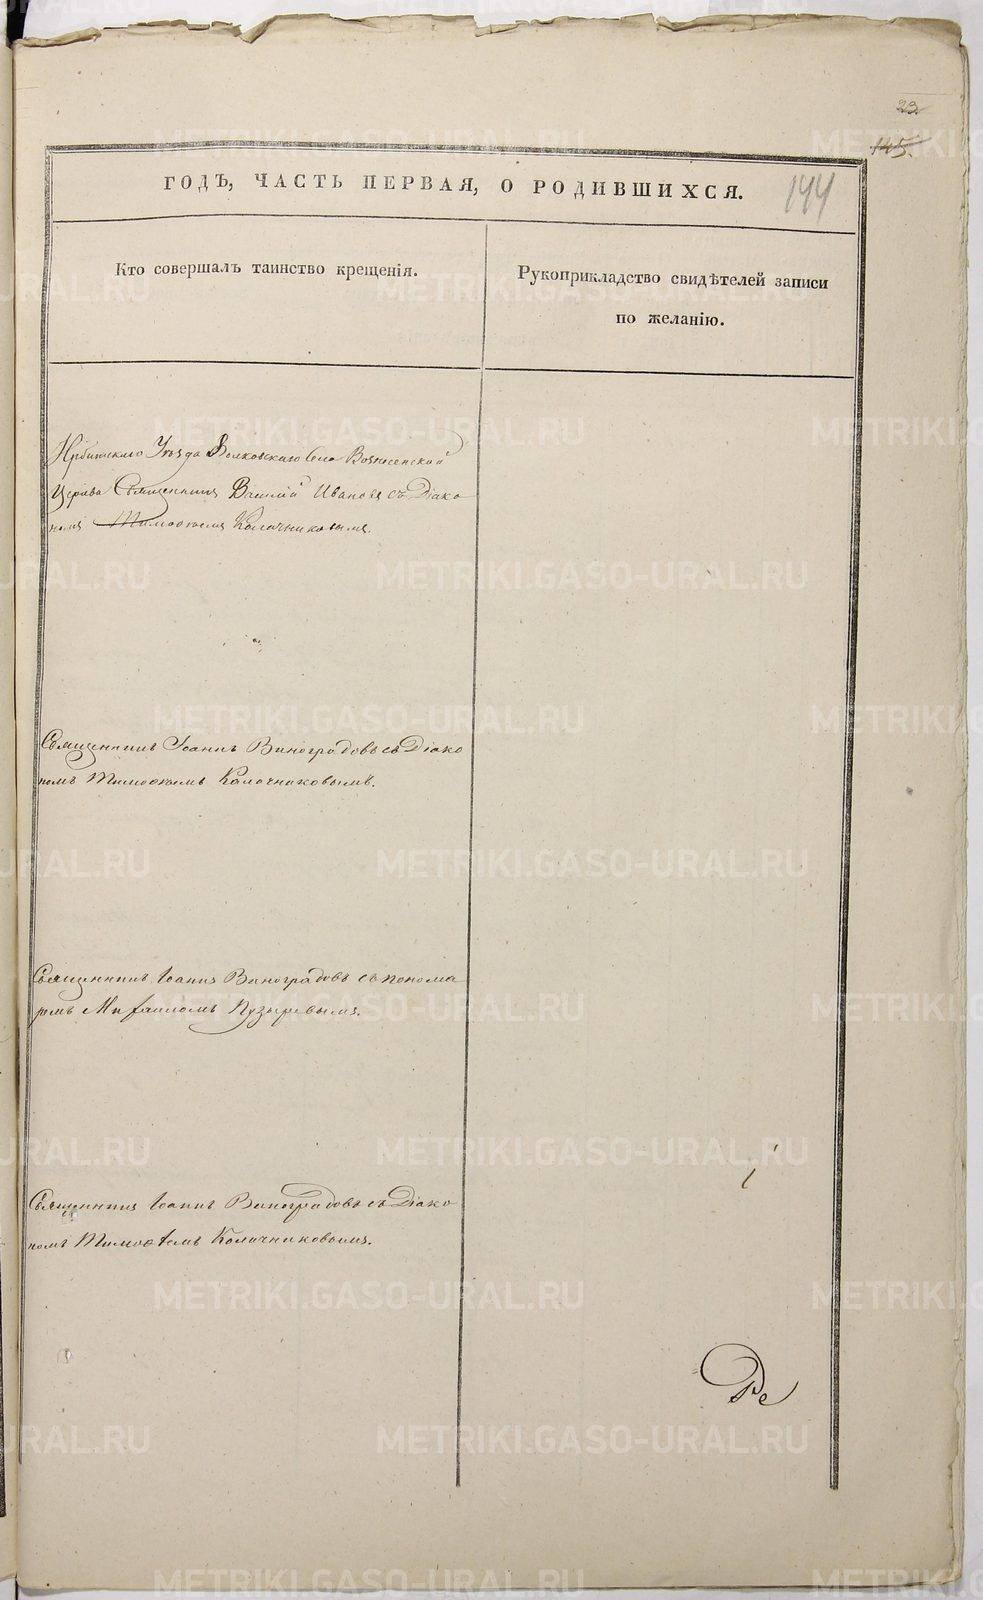 23
145.
ГОДЪ, ЧАСТЬ ПЕРВАЯ, О РОДИВШИХСЯ.
144
Кто совершалъ таинство крещенія.
Рукоприкладство свидѣтелей записи
по желанію.
Ирбитскаго Уѣзда Волковскаго села Вознесенской
Церкви Священникъ Василій Ивановъ съ Діако
номъ Тимофеемъ Колачниковымъ.
Священникъ Іоаннъ Виноградовъ съ Діако
номъ Тимофеемъ Колачниковымъ.
Священникъ Іоаннъ Виноградовъ съ понома
ремъ Михаиломъ Пузыревымъ.
Священникъ Іоаннъ Виноградовъ съ Діако
номъ Тимофеемъ Колачниковымъ.
Ре
METRIKI.GASO-URAL.RU